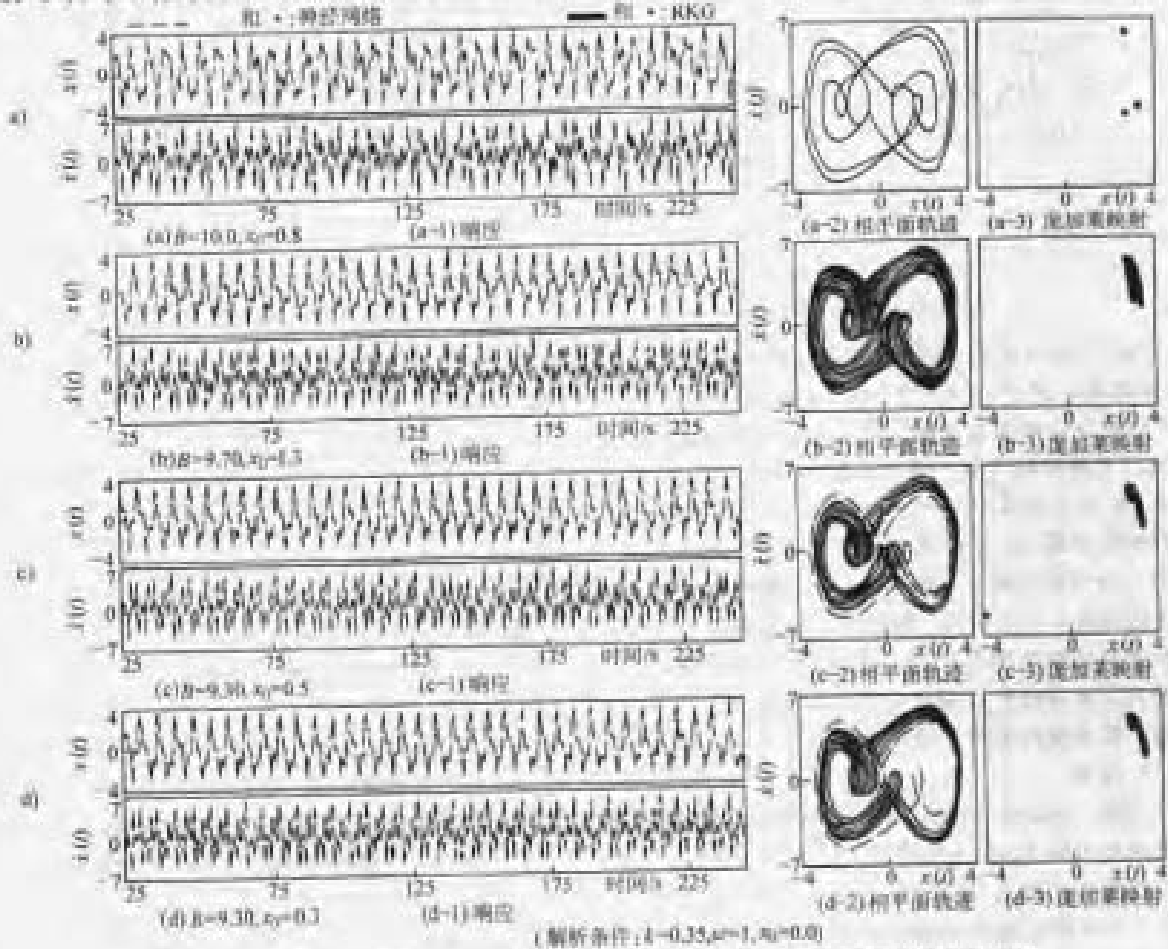 和 •:神经网络 和 •:RKG
4
0
-4
x(t)
a)
7
0
-7
ẋ(t)
25 75 125 175 时间/s 225
(a)B=10.0,x₀=0.8 (a-1)响应
7
0
-7
ẋ(t)
-4 0 x(t) 4
(a-2)相平面轨迹
0 x(t) 4
(a-3)庞加莱映射
4
0
-4
x(t)
b)
7
0
-7
ẋ(t)
25 75 125 175 时间/s 225
(b)B=9.70,x₀=1.3 (b-1)响应
7
0
-7
ẋ(t)
-4 0 x(t) 4
(b-2)相平面轨迹
-4 0 x(t) 4
(b-3)庞加莱映射
4
0
-4
x(t)
c)
7
0
-7
ẋ(t)
25 75 125 175 时间/s 225
(c)B=9.30,x₀=0.5 (c-1)响应
7
0
-7
ẋ(t)
-4 0 x(t) 4
(c-2)相平面轨迹
-4 0 x(t) 4
(c-3)庞加莱映射
4
0
4
x(t)
d)
7
0
-7
ẋ(t)
25 75 125 175 时间/s 225
(d)B=9.30,x₀=0.3 (d-1)响应
7
0
-7
ẋ(t)
-4 0 x(t) 4
(d-2)相平面轨迹
-4 0 x(t) 4
(d-3)庞加莱映射
(解析条件:k=0.35,μ=1,ẋ₀=0.0)